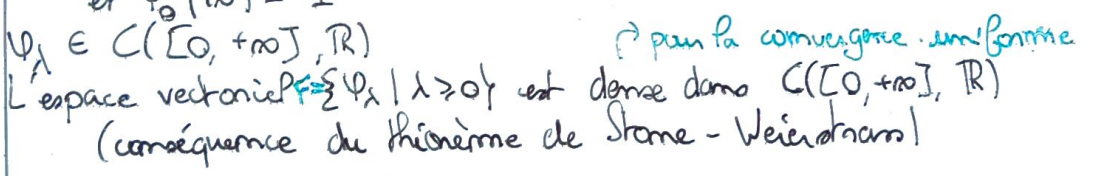 et φ₀(∞) = 1
φ_λ ∈ C([0, +∞], ℝ)
pour la convergence uniforme
L'espace vectoriel F={φ_λ | λ ≥ 0} est dense dans C([0, +∞], ℝ)
(conséquence du théorème de Stone - Weierstrass)